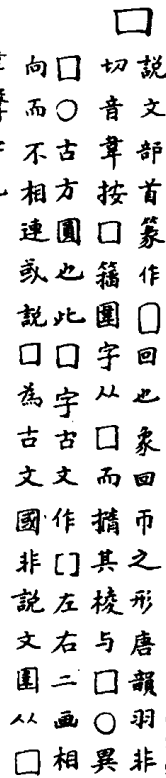 囗
説文部首篆作囗回也象回帀之形唐韻羽非
切音韋按囗籀圍字从囗而撱其棱与囗〇異
囗〇古方圓也此囗字古文作[]左右二画相
向而不相連或説囗為古文國非説文圍从囗